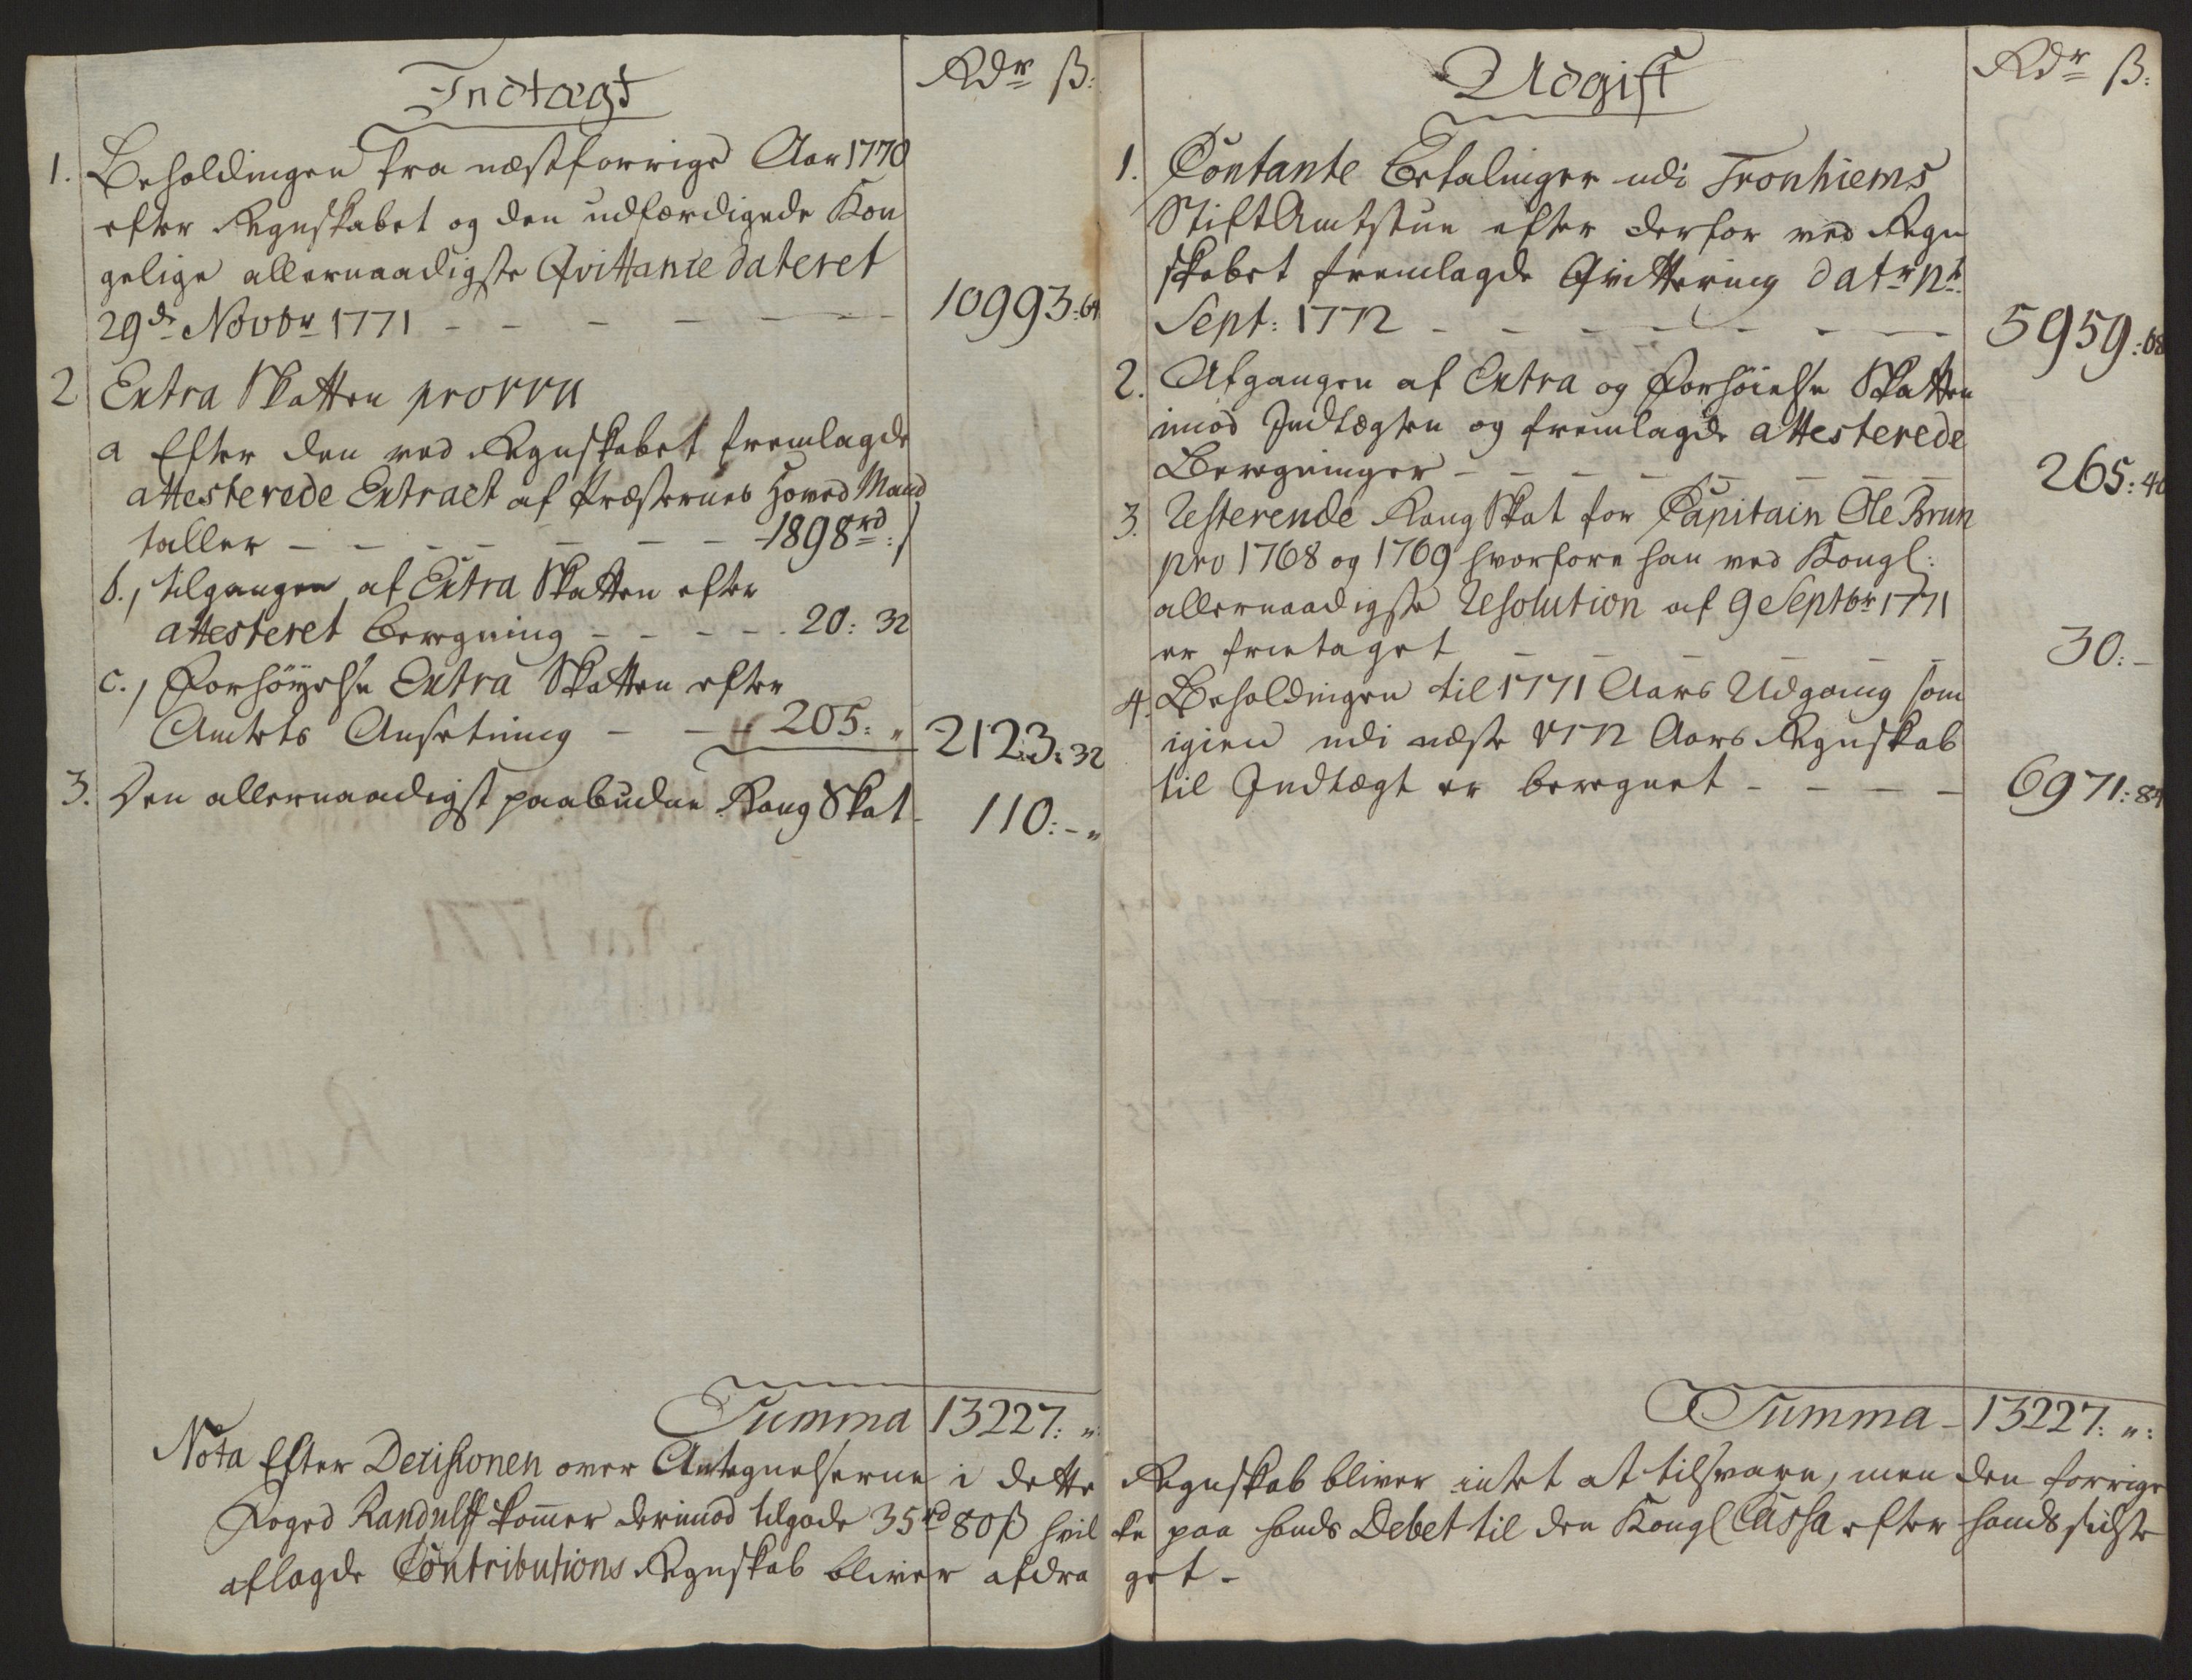 Indtægt
Rdr ß:
1. Beholdningen fra næstforrige Aar 1770
efter Regnskabet og den udfærdigede Kon
gelige allernaadigste Qvittance dateret
29de Novbr 1771 - - - - - - 10993:64
2 Extra Skatten pro
a Efter den ved Regnskabet fremlagde
attesterede Extract af Præsternes Hoved Mand
taller - - - - - - - 1898rd:
b., tilgangen af Extra Skatten efter
attesteret beregning - - - - 20: 32
c., Forhöyelse Extra Skatten efter
Amtets Ansetning - - 205: " 2123:32
3. Den allernaadigst paabudne Rang Skat - 110:-"
Summa 13227: ":
Udgift
Rdr ß:
1. Contante Betalinger udi Tronhiems
Stift Amtstue efter derfor ved Regn
skabet fremlagde Qvittering
Sept: 1772 - - - - - - - 5959:
2. Afgangen af Extra og Forhöielse Skatten
imod Indtægten og fremlagde attesterede
Beregninger - - - - - - - 265:40
3. Resterende Rang Skat for Capitain Ole Brun
pro 1768 og 1769 hvorfore han ved Kongl:
allernaadigste Resolution af 9 Septbr 1771
er frietaget - - - - - 30:-
4. Beholdningen til 1771 Aars Udgang som
igien udi næste 1772 Aars Regnskab
til Indtægt er beregnet - - - - 6971:84
Summa - 13227: ":
Nota Efter Decisionen over Antegnelserne i dette Regnskab bliver intet at tilsvare, men den forrige
Foged Randulff kommer derimod tilgode 35rd 80ß hvil ke paa hands Debet til den Kongl Cassa efter hands sidste
aflagde Contributions Regnskab bliver afdra get -